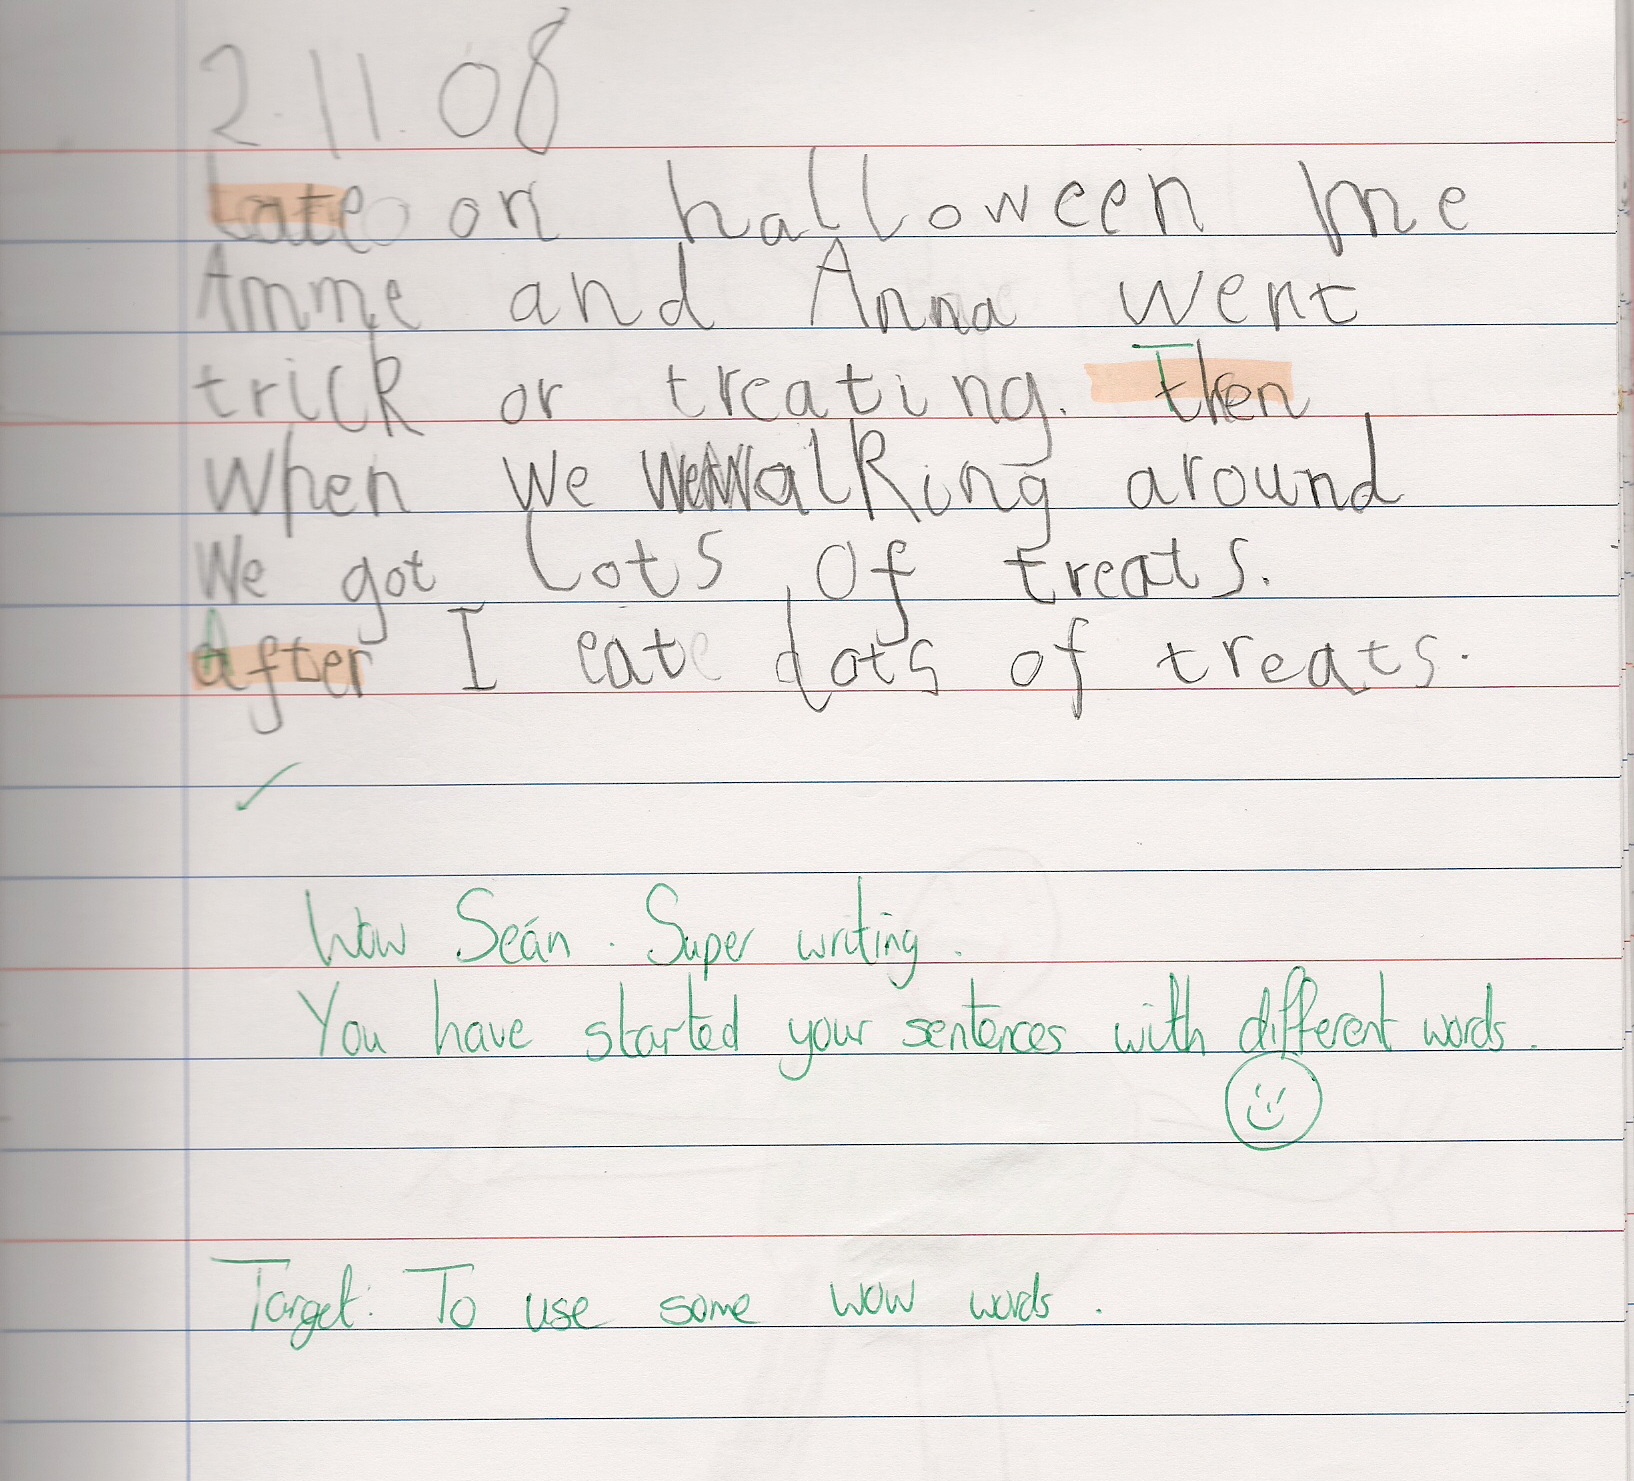 2.11.08
Late on halloween me
Amme and Anna went
trick or treating. Then
when we walking around
We got lots of treats.
After I eat lots of treats.
Wow Seán. Super writing.
You have started your sentences with different words.
Target: To use some wow words.